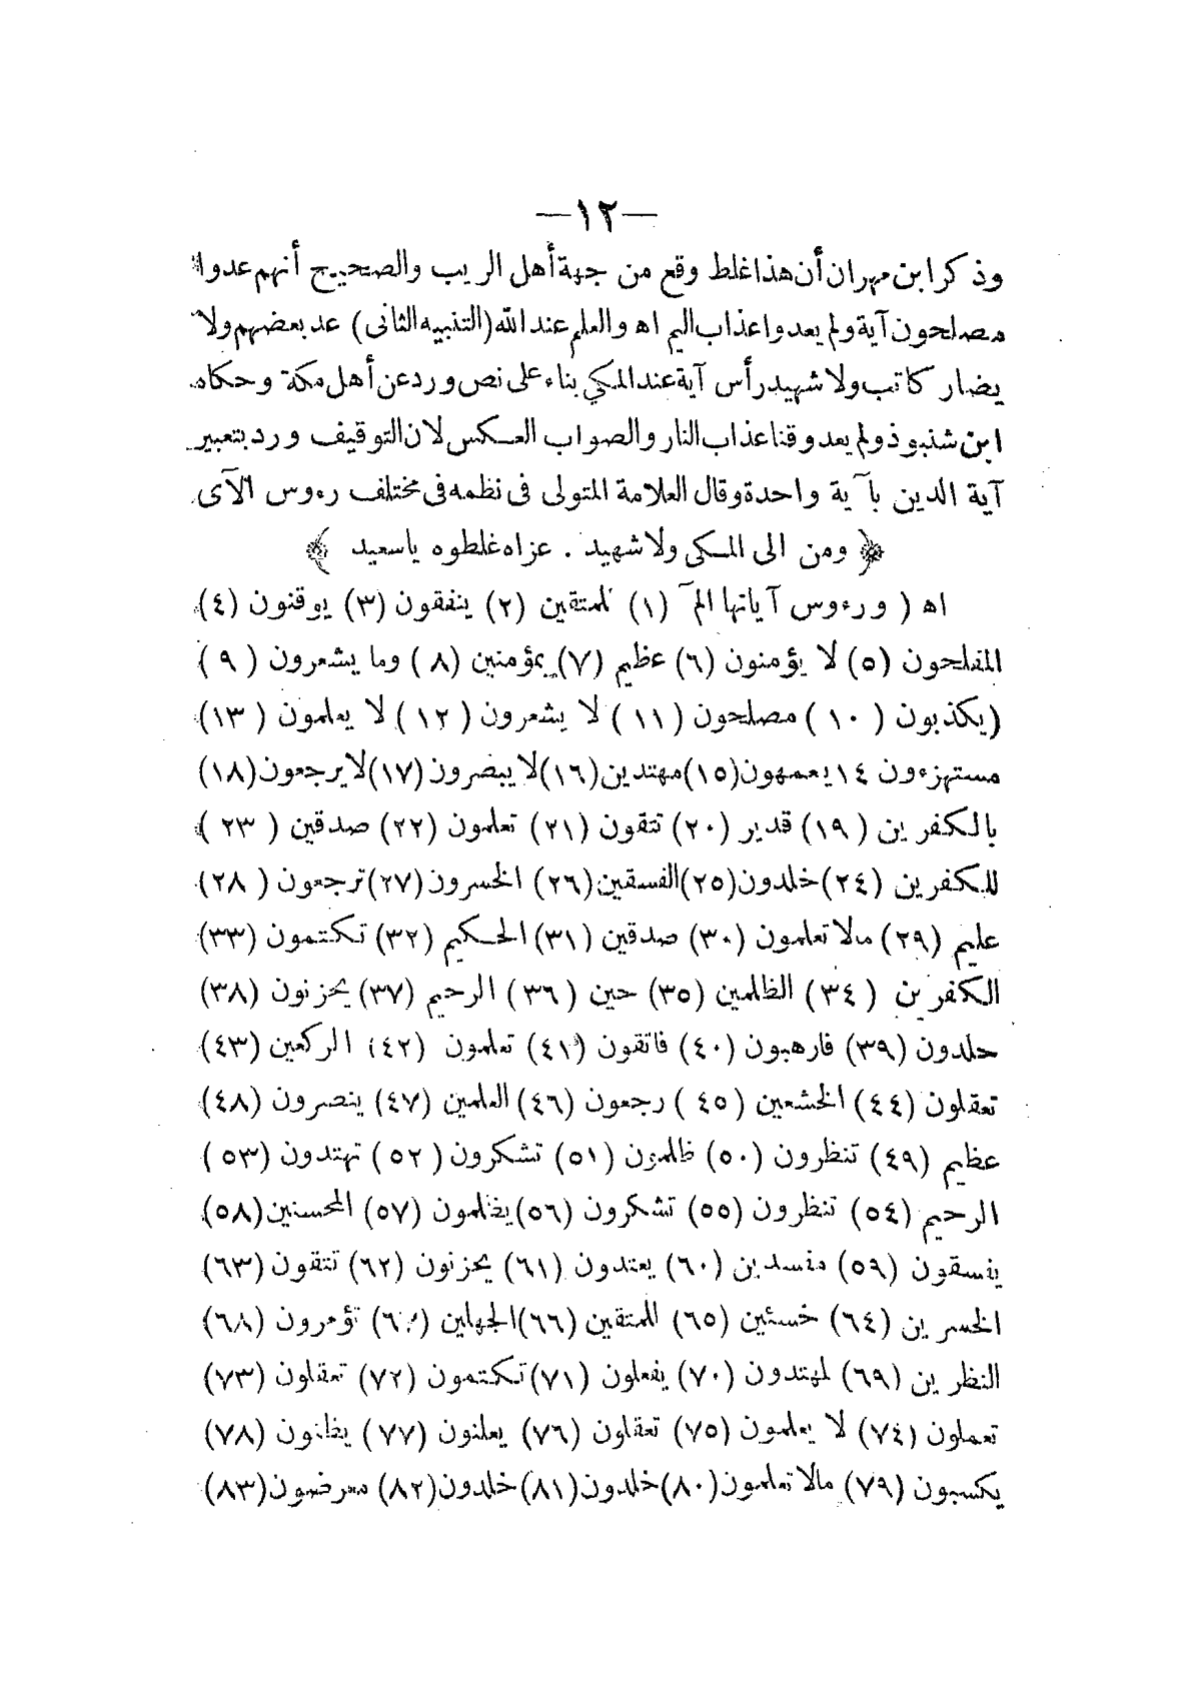 —١٢—
وذكر ابن مهران أن هذا غلط وقع من جهة أهل الريب والصحيح أنهم عدوا
مصلحون آية ولم يعدوا عذاب اليم اه والعلم عند الله (التنبيه الثانى) عد بعضهم ولا
يضار كاتب ولا شهيد رأس آية عند المكي بناء على نص ورد عن أهل مكة وحكاه
ابن شنبوذ ولم يعد وقنا عذاب النار والصواب العكس لان التوقيف ورد بتعبير
آية الدين بآية واحدة وقال العلامة المتولى فى نظمه فى مختلف رءوس الآى
﴿ ومن الى المكى ولا شهيد . عزاه غلطوه ياسعيد ﴾
اه ( ورءوس آياتها الم~ (١) للمتقين (٢) ينفقون (٣) يوقنون (٤)
المفلحون (٥) لا يؤمنون (٦) عظيم (٧) بمؤمنين (٨) وما يشعرون (٩)
(يكذبون (١٠) مصلحون (١١) لا يشعرون (١٢) لا يعلمون (١٣)
مستهزءون ١٤ يعمهون (١٥) مهتدين (١٦) لا يبصرون (١٧) لا يرجعون (١٨)
بالكفرين (١٩) قدير (٢٠) تتقون (٢١) تعلمون (٢٢) صدقين (٢٣)
للكفرين (٢٤) خلدون (٢٥) الفسقين (٢٦) الخسرون (٢٧) ترجعون (٢٨)
عليم (٢٩) مالا تعلمون (٣٠) صدقين (٣١) الحكيم (٣٢) تكتمون (٣٣)
الكفرين (٣٤) الظلمين (٣٥) حين (٣٦) الرحيم (٣٧) يحزنون (٣٨)
خلدون (٣٩) فارهبون (٤٠) فاتقون (٤١) تعلمون (٤٢) الركعين (٤٣)
تعقلون (٤٤) الخشعين (٤٥) رجعون (٤٦) العلمين (٤٧) ينصرون (٤٨)
عظيم (٤٩) تنظرون (٥٠) ظلمون (٥١) تشكرون (٥٢) تهتدون (٥٣)
الرحيم (٥٤) تنظرون (٥٥) تشكرون (٥٦) يظلمون (٥٧) المحسنين (٥٨)
يفسقون (٥٩) مفسدين (٦٠) يعتدون (٦١) يحزنون (٦٢) تتقون (٦٣)
الخسرين (٦٤) خسئين (٦٥) للمتقين (٦٦) الجهلين (٦٧) تؤمرون (٦٨)
النظرين (٦٩) لمهتدون (٧٠) يفعلون (٧١) تكتمون (٧٢) تعقلون (٧٣)
تعملون (٧٤) لا يعلمون (٧٥) تعقلون (٧٦) يعلنون (٧٧) يظنون (٧٨)
يكسبون (٧٩) مالا تعلمون (٨٠) خلدون (٨١) خلدون (٨٢) معرضون (٨٣)